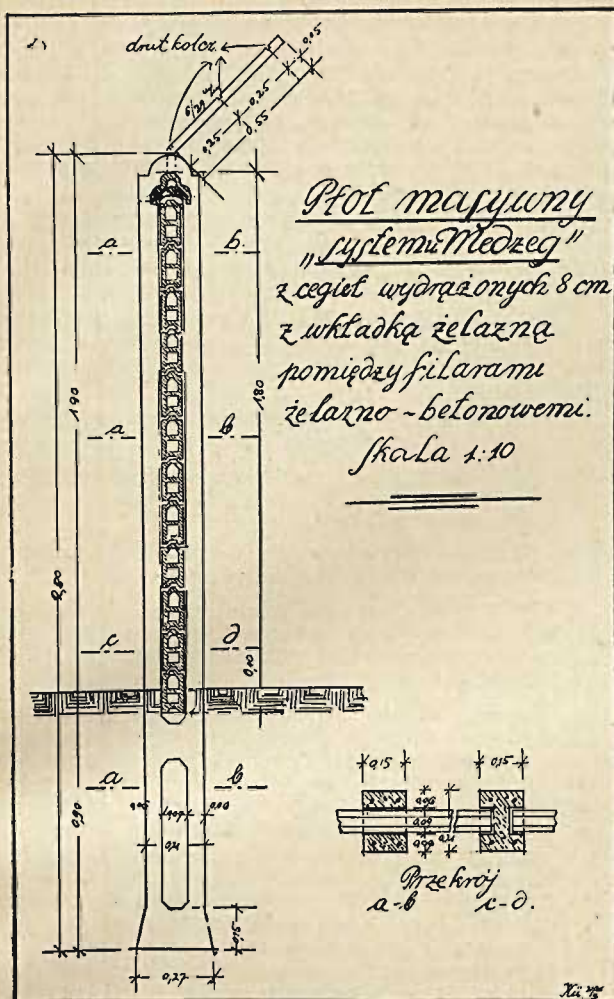 drut kolcz.
0,05
0,25
0,25
0,55
Płot masywny
„systemu Medzeg"
z cegieł wydrążonych 8 cm
z wkładką żelazną
pomiędzy filarami
żelazno-betonowemi.
Skala 1:10
a b
a b
c d
a b
1,90
2,80
1,80
0,10
0,90
0,21
0,15
0,27
0,15 0,15
0,06
0,09
0,21
Przekrój
a-b c-d.